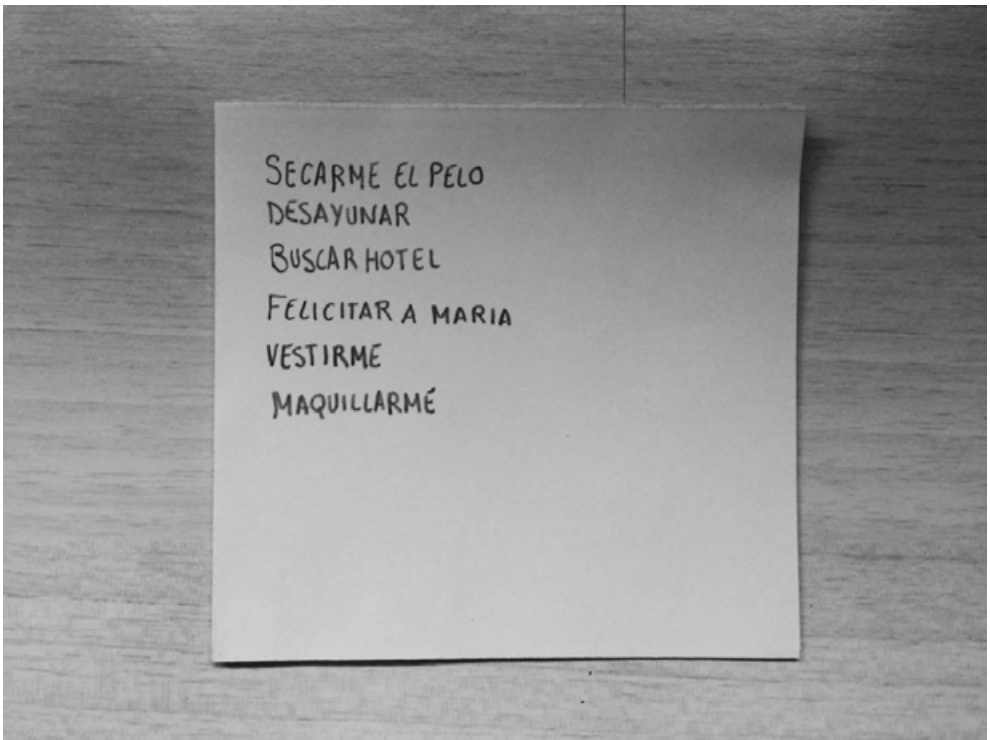 SECARME EL PELO
DESAYUNAR
BUSCAR HOTEL
FELICITAR A MARIA
VESTIRME
MAQUILLARMÉ